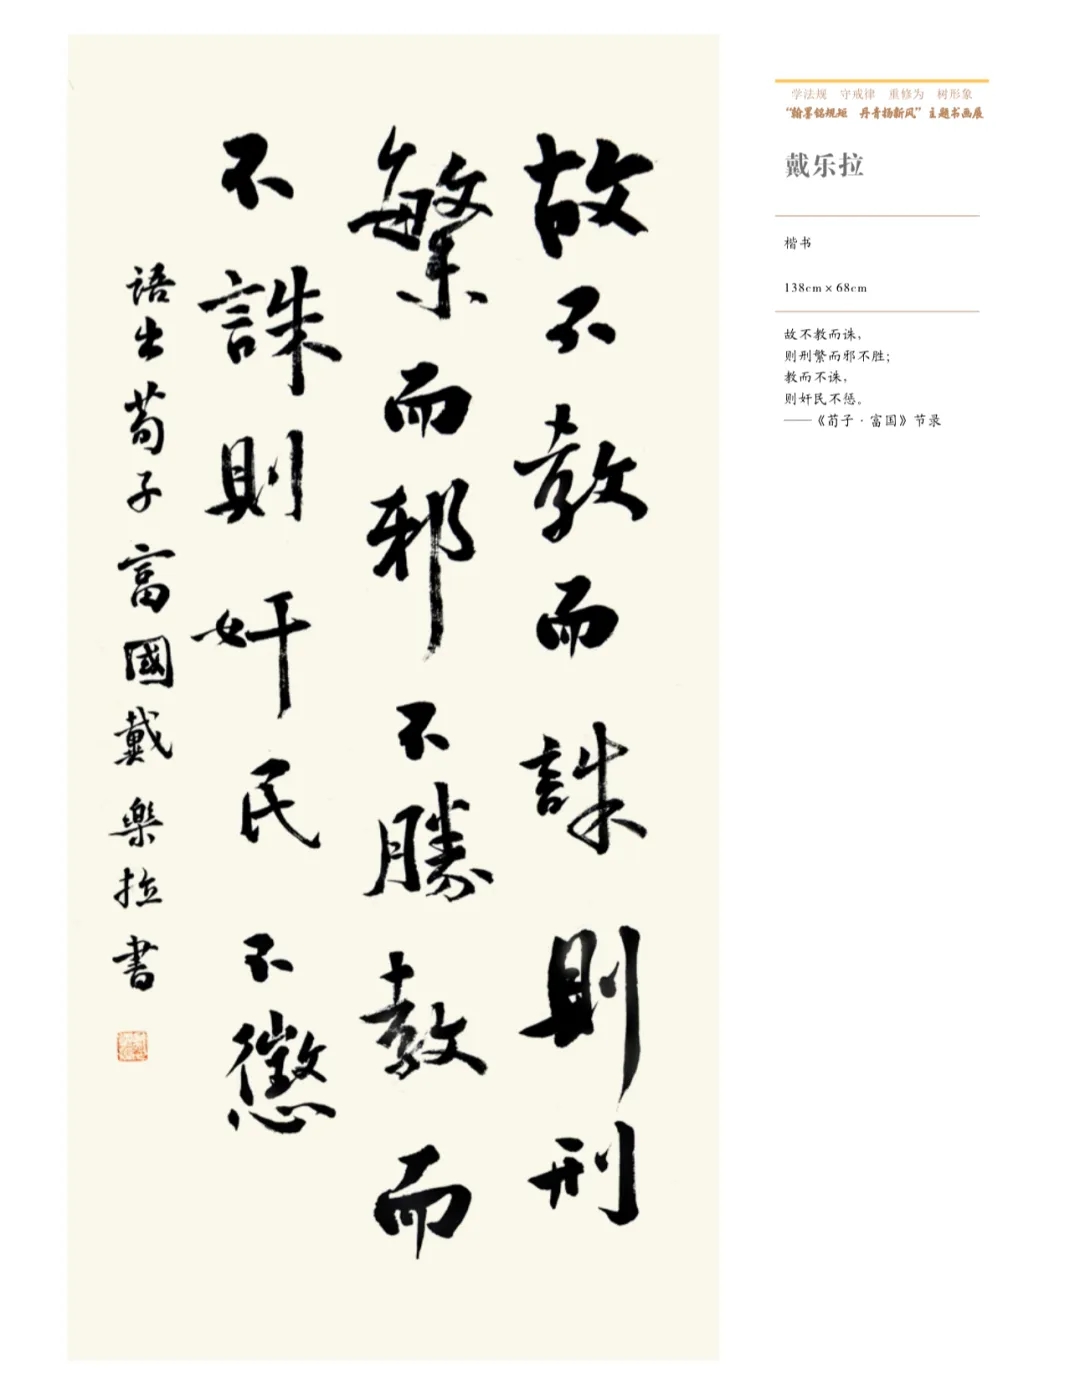 故不教而誅則刑
繁而邪不勝教而
不誅則奸民不懲
語出荀子富國戴樂拉書
学法规 守戒律 重修为 树形象
“翰墨铭规矩 丹青扬新风”主题书画展
戴乐拉
楷书
138cm×68cm
故不教而诛，
则刑繁而邪不胜；
教而不诛，
则奸民不惩。
——《荀子·富国》节录